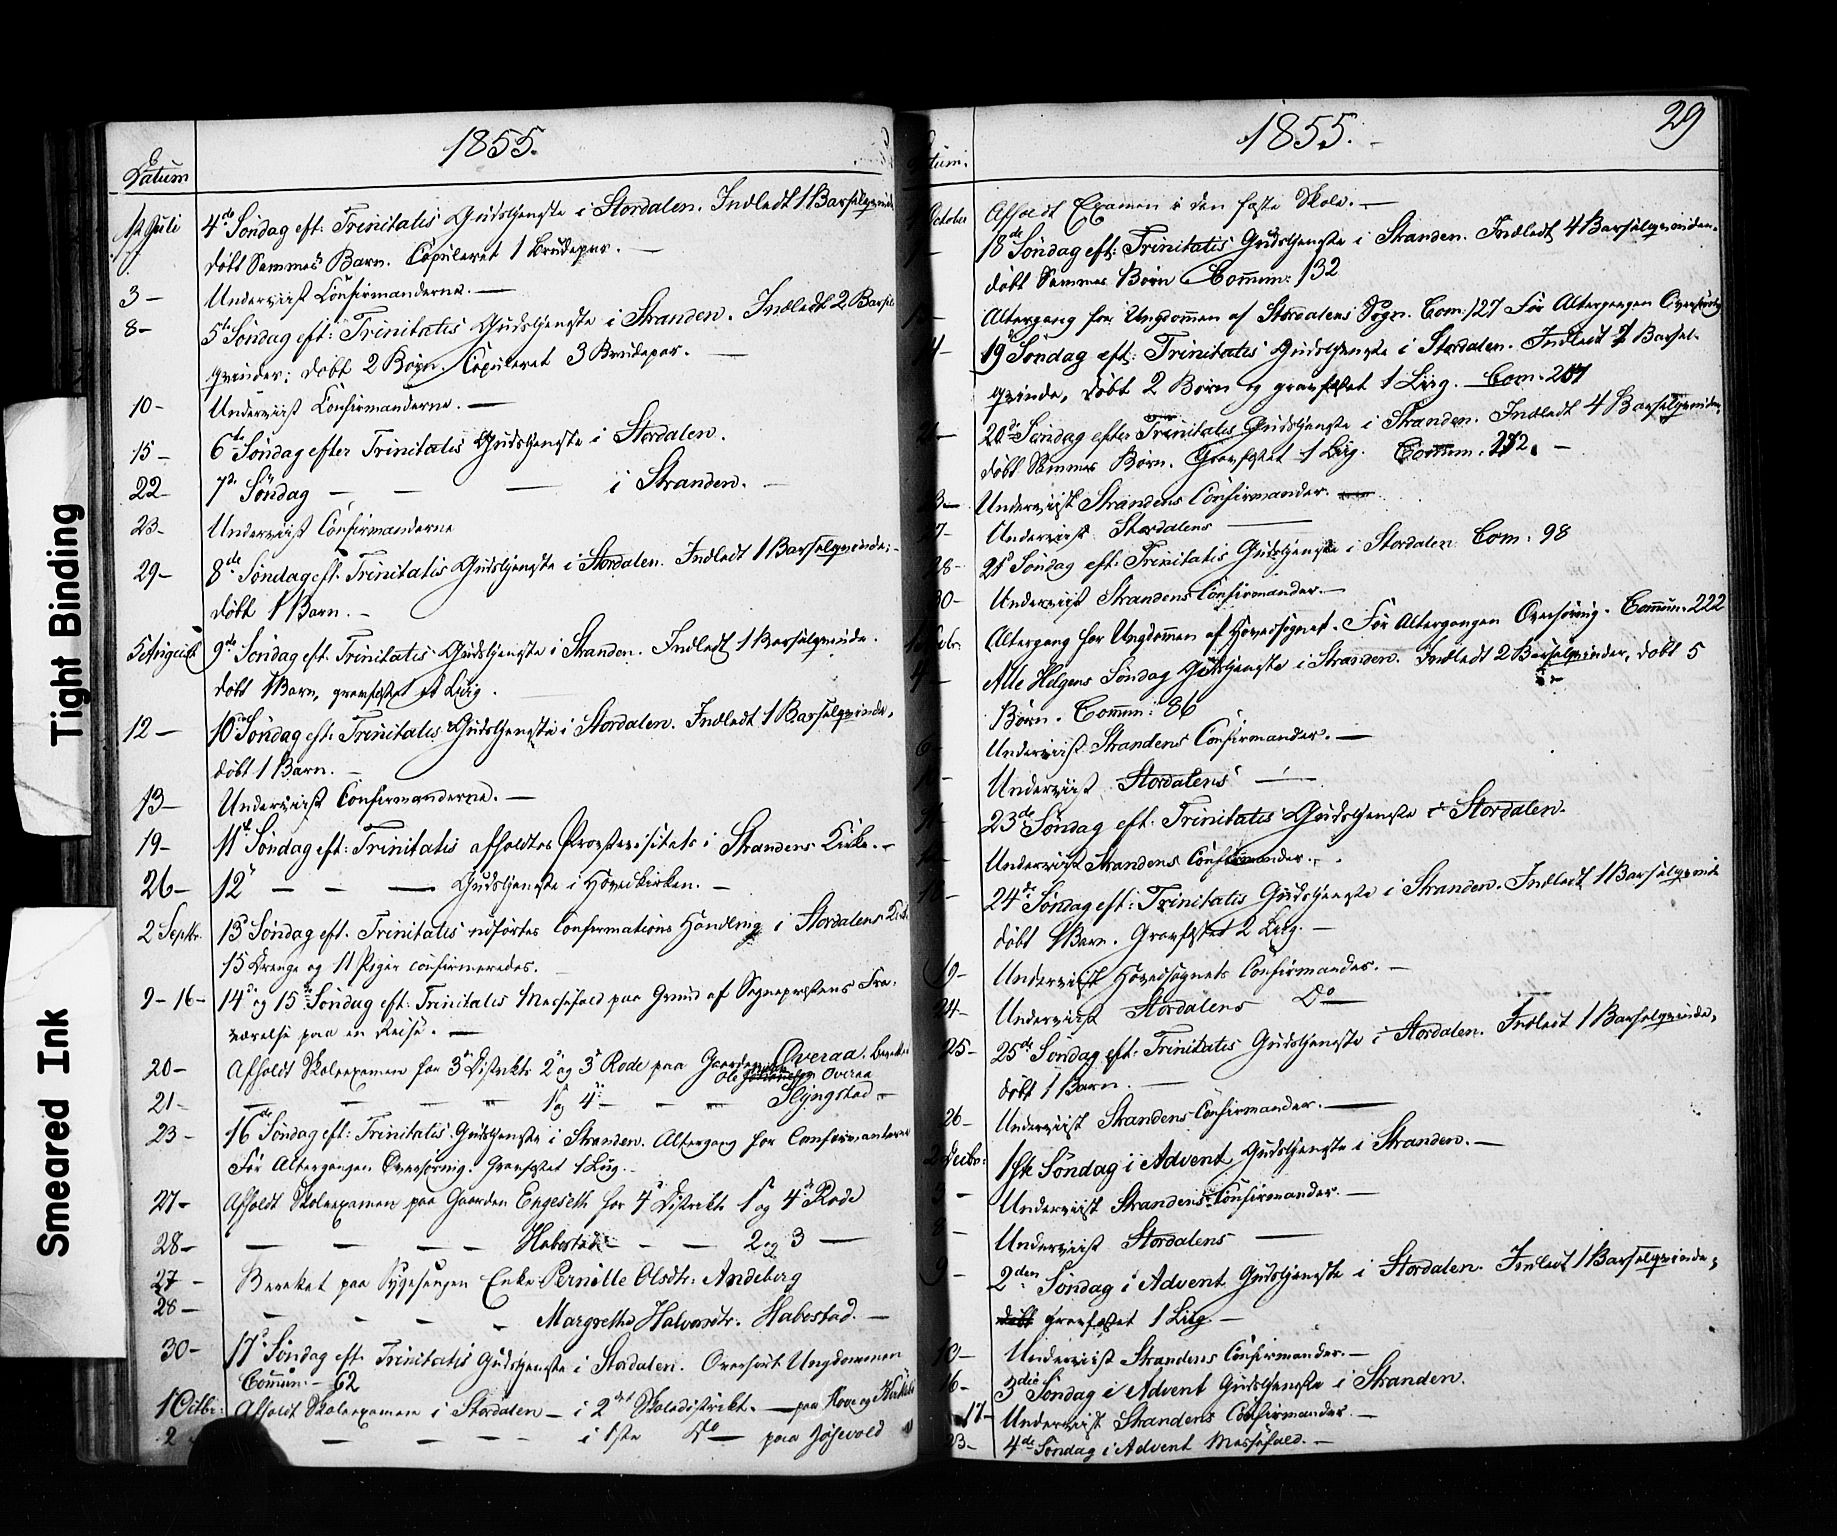 Tight Binding
Smeared Ink
1855.
Datum
1ste Juli 4de Søndag eft: Trinitatis Gudstjeneste i Stordalen. Indledt 1 Barselqvinde
døbt Sammes Barn. Copuleret 1 Brudepar. —
3 — Underviist Confirmanderne. —
8 — 5te Søndag eft: Trinitatis Gudstjeneste i Stranden. Indledt 2 Barsel
qvinder; døbt 2 Børn. Copuleret 3 Brudepar. —
10 — Underviist Confirmanderne. —
15 — 6te Søndag efter Trinitatis Gudstjeneste i Stordalen.
22 — 7de Søndag — — — i Stranden. —
23 — Underviist Confirmanderne
29 — 8de Søndag eft: Trinitatis Gudstjeneste i Stordalen. Indledt 1 Barselqvinde;
døbt 1 Barn. —
5 August 9de Søndag eft. Trinitatis Gudstjeneste i Stranden. Indledt 1 Barselqvinde.
døbt 1 Barn, gravfæstet et Liig.
12 — 10de Søndag eft: Trinitatis Gudstjeneste i Stordalen. Indledt 1 Barselqvinde,
døbt 1 Barn. —
13 — Underviist Confirmanderne. —
19 — 11te Søndag eft: Trinitatis afholdtes Provstevisitats i Strandens Kirke. —
26 — 12 — — — Gudstjeneste i Hovedkirken. —
2 Septbr. 13de Søndag eft. Trinitatis udførtes Confirmations Handling i Stordalens
15 Drenge og 11 Piger confirmeredes.
9 - 16 — 14de og 15de Søndag eft: Trinitatis Messefald paa Grund af Sognepræstens Fra-
værelse paa en Reise. —
20 — Afholdt Skoleexamen for 3de Distrikts 2de og 3de Rode paa Gaarden Overaa.
Ole Overaa
21 — — — — — 1 og 4de — — — Slyngstad —
23 — 16de Søndag eft: Trinitatis Gudstjeneste i Stranden. Altergang for Confirmanterne
Før Altergangen Overhøring. Gravfæstet 1 Liig. —
27 — Afholdt Skoleexamen paa Gaarden Engeseth for 4de Distrikts 1ste og 4de Rode
28 — — — — — Habostad — — — 2 og 3 —
27 — Berettet paa Sygesengen Enke Pernille Olsdtr: Andeberg
28 — — — — — Margrethe Halvordtr. Habostad. —
30 — 17de Søndag eft. Trinitatis Gudstjeneste i Stordalen. Overhørt Ungdommen
Commun: — 62
1 Octbr: Afholdt Skoleexamen i Stordalen — i 2det Skoledistrikt. — paa Hove og
2 — — — — i 1ste Do — paa
1855. —
29
October Afholdt Examen i den faste Skole. —
18de Søndag eft: Trinitatis Gudstjeneste i Stranden. Indledt 4 Barselqvinder.
døbt Sammes Børn Commun: 132
Altergang for Ungdommen af Stordalens Sogn. Com: 127 Før Altergangen Overhøring
19de Søndag eft: Trinitatis Gudstjeneste i Stordalen. Indledt 1 Barsel-
qvinde, døbt 2 Børn og gravfæstet 1 Liig. — Com. 207
20de Søndag efter Trinitatis Gudstjeneste i Stranden. Indledt 4 Barselqvinder,
døbt Sammes Børn. Gravfæstet 1 Liig. Commun. 212. —
Underviist Strandens Confirmander.
Underviist Stordalens —
28 — 21de Søndag eft: Trinitatis Gudstjeneste i Stordalen Com: 98
30 — Underviist Strandens Confirmander. —
Altergang for Ungdommen af Hovedsognet. Før Altergangen Overhøring. Commun. 222
4 — Alle Helgens Søndag Gudstjeneste i Stranden. Indledt 2 Barselqvinder, døbt 5
Børn. Commun: 86
6 — Underviist Strandens Confirmander. —
Underviist Stordalens —
23de Søndag eft. Trinitatis Gudstjeneste i Stordalen.
Underviist Strandens Confirmander. —
24de Søndag eft: Trinitatis Gudstjeneste i Stranden. Indledt 1 Barselqvinde
døbt 1 Barn. Gravfæstet 2 Liig. —
19 — Underviist Hovedsognets Confirmander. —
24 — Underviist Stordalens Do —
25 — 25de Søndag eft: Trinitatis Gudstjeneste i Stordalen. Indledt 1 Barselqvinde,
døbt 1 Barn. —
26 — Underviist Strandens Confirmander. —
2 Decbr: 1ste Søndag i Advent Gudstjeneste i Stranden. —
3 — Underviist Strandens Confirmander. —
8 — Underviist Stordalens —
9 — 2den Søndag i Advent Gudstjeneste i Stordalen. Indledt 1 Barselqvinde,
døbt gravfæstet 1 Liig —
10 — Underviist Strandens Confirmander. —
16 — 3die Søndag i Advent Gudstjeneste i Stranden.
17 — Underviist Strandens Confirmander. —
23 — 4de Søndag i Advent Messefald. —